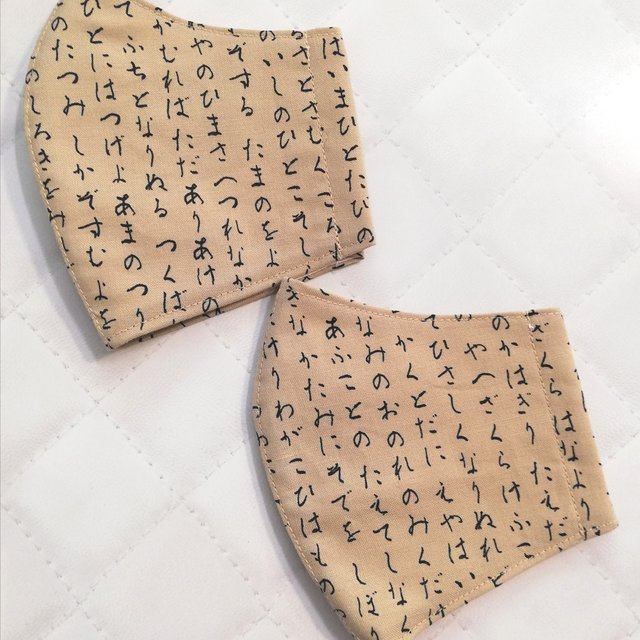 はいまひとたびの
さとさむくころも
いしのひとこそし
そする たまのをよ
やのひまさへつれな
がむればただありあけの
てふちとなりぬる つくば
ひとにはつげよあまのつり
のたつみ しかぞすむよ
のしろきをみ
さくらはなより
のかはぎり たえだ
やへざくらけふ
てひさしくなりぬれど
かくとだに えやはい
なみのおのれのみくだ
あふことの たえてしな
なかたみにそでをしぼ
りわがこひはもの